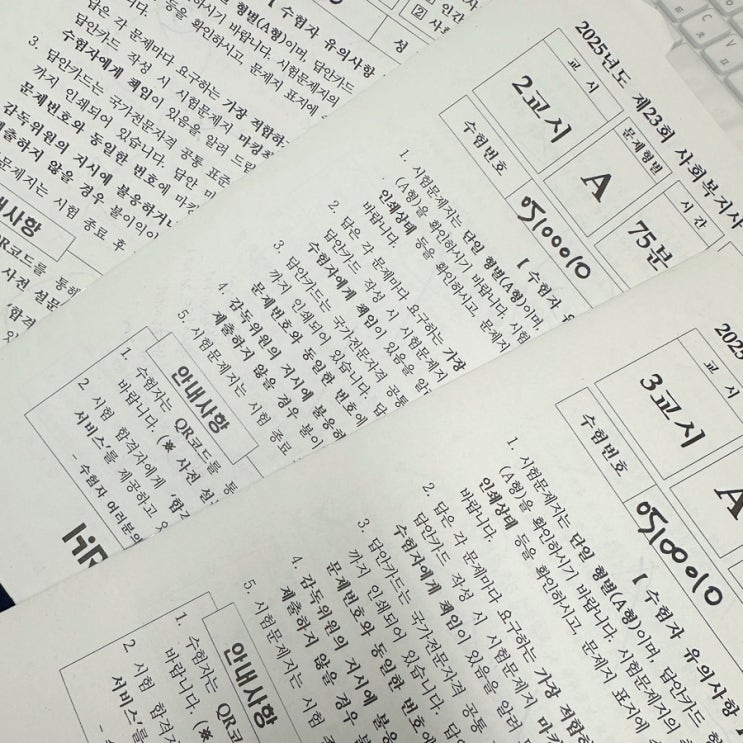 【 수험자 유의사항
(A형)이며, 답안카드
등을 확인하시고, 문제지 표지에
바랍니다.
답은 각 문제마다 요구하는 가장 적합한
답안카드 작성 시 시험문제지 마킹
수험자에게 책임이 있음을 알려 드립
3. 답안카드는 국가전문자격 공통 표준
까지 인쇄되어 있습니다. 답안 마
문제번호와 동일한 번호에 마킹
감독위원의 지시에 불응하거나
제출하지 않을 경우 불이익이
문제지는 시험 종료 후
내사항
QR코드를 통하
사전 설문
'합격
2025년도 제23회 사회복지사
교 시
문제형별
시 간
2교시
A
75분
수험번호
05100010
【 수험자 유
1. 시험문제지는 단일 형별(A형)이며,
(A형)을 확인하시기 바랍니다. 시험
인쇄상태 등을 확인하시고, 문제지
바랍니다.
2. 답은 각 문제마다 요구하는 가장
답안카드 작성 시 시험문제지
수험자에게 책임이 있음을 알
3. 답안카드는 국가전문자격 공통
까지 인쇄되어 있습니다. 답
문제번호와 동일한 번호에
4. 감독위원의 지시에 불응하
제출하지 않을 경우 불이
5. 시험문제지는 시험 종료
안내사항
1. 수험자는 QR코드를 통
바랍니다. (※ 사전 설
2 시험 합격자에게 '합격
서비스'를 제공하고 오
- 수험자 여러분의
HR
2025
교 시
3교시
A
수험번호
05100010
【 수험자 유의사항
1. 시험문제지는 단일 형별(A형)이며, 답안카드 형
(A형)을 확인하시기 바랍니다. 시험문제지의 총
인쇄상태 등을 확인하시고, 문제지 표지에
바랍니다.
2. 답은 각 문제마다 요구하는 가장 적합한
답안카드 작성 시 시험문제지 마킹
수험자에게 책임이 있음을 알려
3. 답안카드는 국가전문자격 공통
까지 인쇄되어 있습니다. 답안
문제번호와 동일한 번호에
4. 감독위원의 지시에 불응
제출하지 않을 경우
5. 시험문제지는 시험 종
안내사항
1. 수험자는 QR코
바랍니다. (※
2 시험 합격자
서비스'를
- 수험